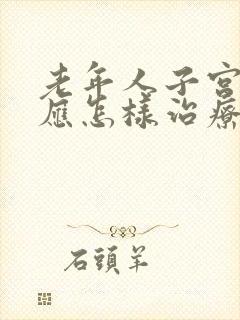 老年人子宮
應怎樣治療
石頭羊